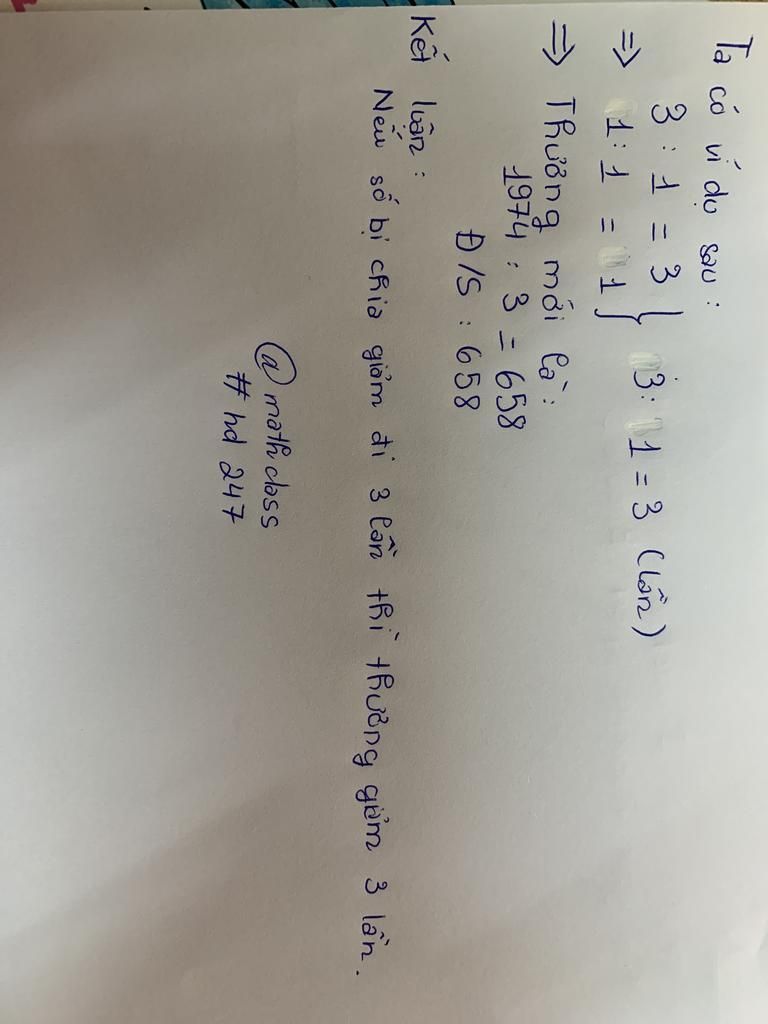 Ta có ví dụ sau:
3 : 1 = 3
⇒ 1 : 1 = 1 } 3 : 1 = 3 (lần)
⇒ Thương mới là:
1974 : 3 = 658
Đ/S : 658
Kết luận:
Nếu số bị chia giảm đi 3 lần thì thương giảm 3 lần.
@mathclass
#hd247